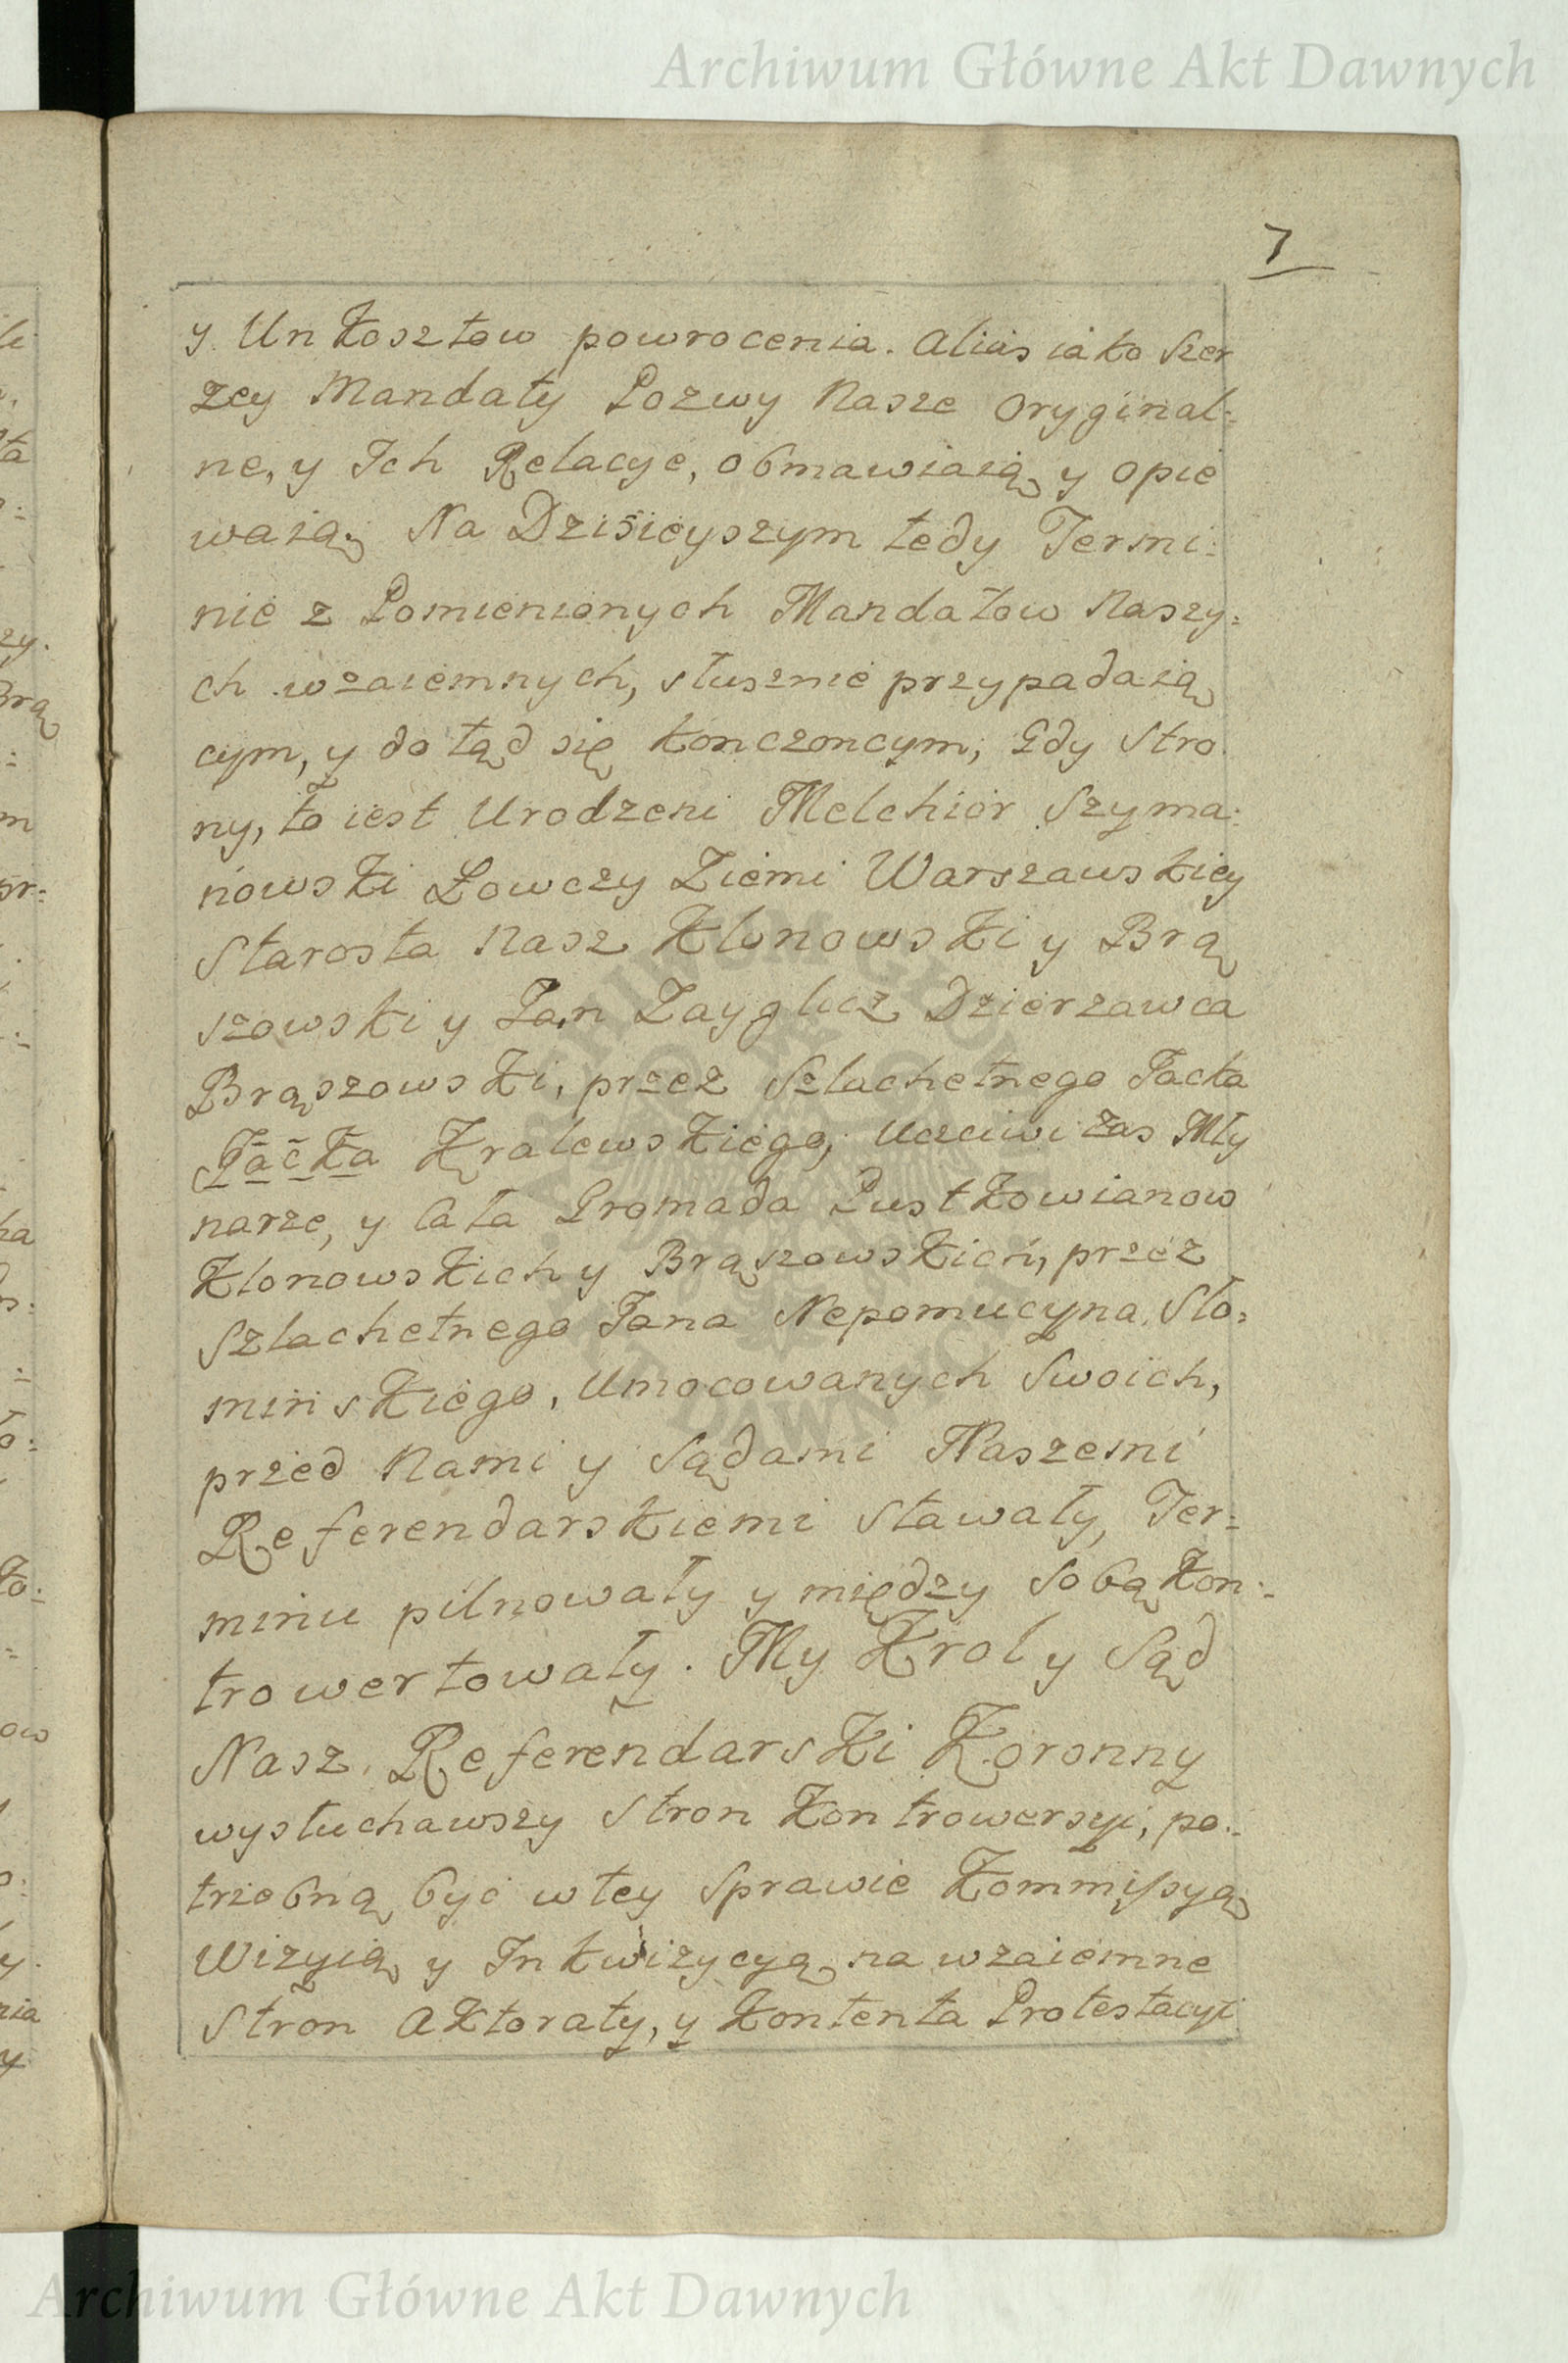 Archiwum Główne Akt Dawnych
7
y Unkosztow powrocenia. Alias iako Szer
zey Mandaty Pozwy Nasze Oryginal:
ne, y Ich Relacye, obmawiaią y opie
waią; Na Dzisieyszym tedy Termi:
nie z Pomienionych Mandatow Naszy:
ch wzaiemnych, słusznie przypadaią
cym, y dotąd się konczoncym, Gdy Stro
ny, to iest Urodzeni Melchior Szyma:
nowski Łowczy Ziemi Warszawskiey
Starosta Nasz Klonowski y Brą
szowski y Jan Zayglicz Dzierzawca
Brąszowski, przez Szlachetnego Jacka
Jacka Kralewskiego, Uczciwi zas Mły
narze, y Cała Gromada Pustkowianow
Klonowskich y Brąszowskich, przez
Szlachetnego Jana Nepomucyna Sło:
minskiego, Umocowanych Swoich,
przed Nami y Sądami Naszemi
Referendarskiemi Stawały, Ter:
minu pilnowały y między Sobą Kon:
trowertowały. My Krol y Sąd
Nasz Referendarski Koronny
wysłuchawszy Stron Kontrowersyi, po:
trzebną być w tey Sprawie Kommissyą
Wizyią y Inkwizycyą na wzaiemne
Stron Aktoraty, y Kontenta Protestacyi
Archiwum Główne Akt Dawnych